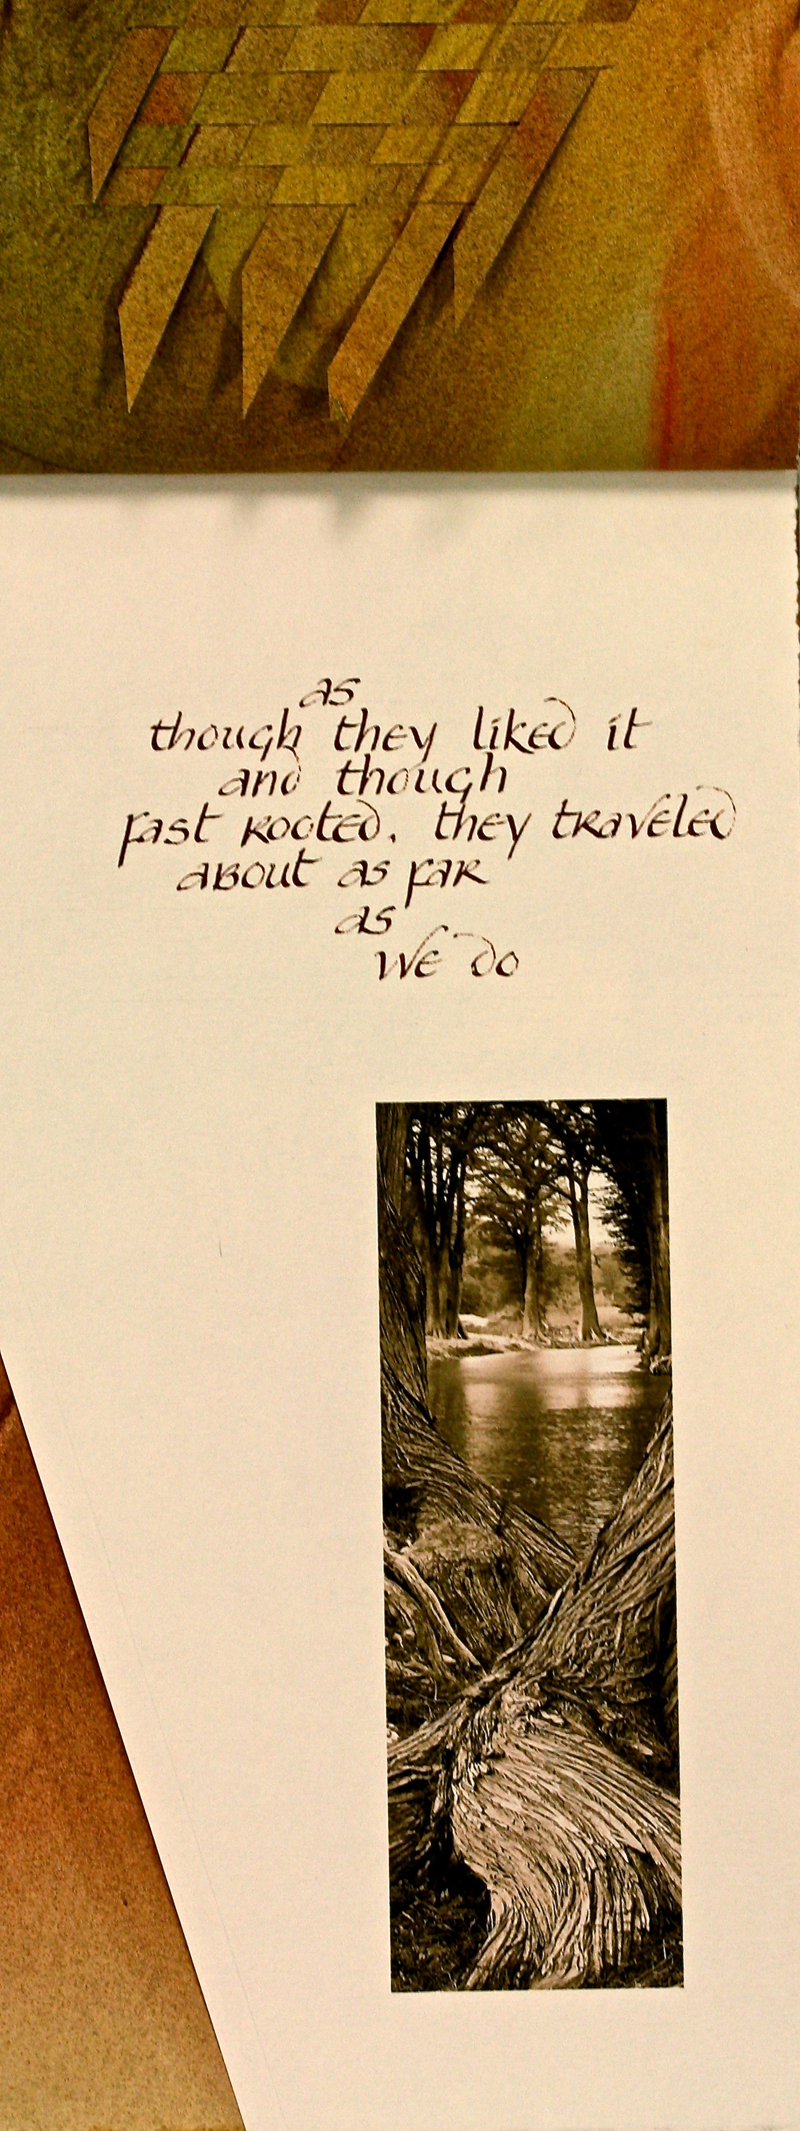 as
though they liked it
and though
fast rooted, they traveled
about as far
as
we do